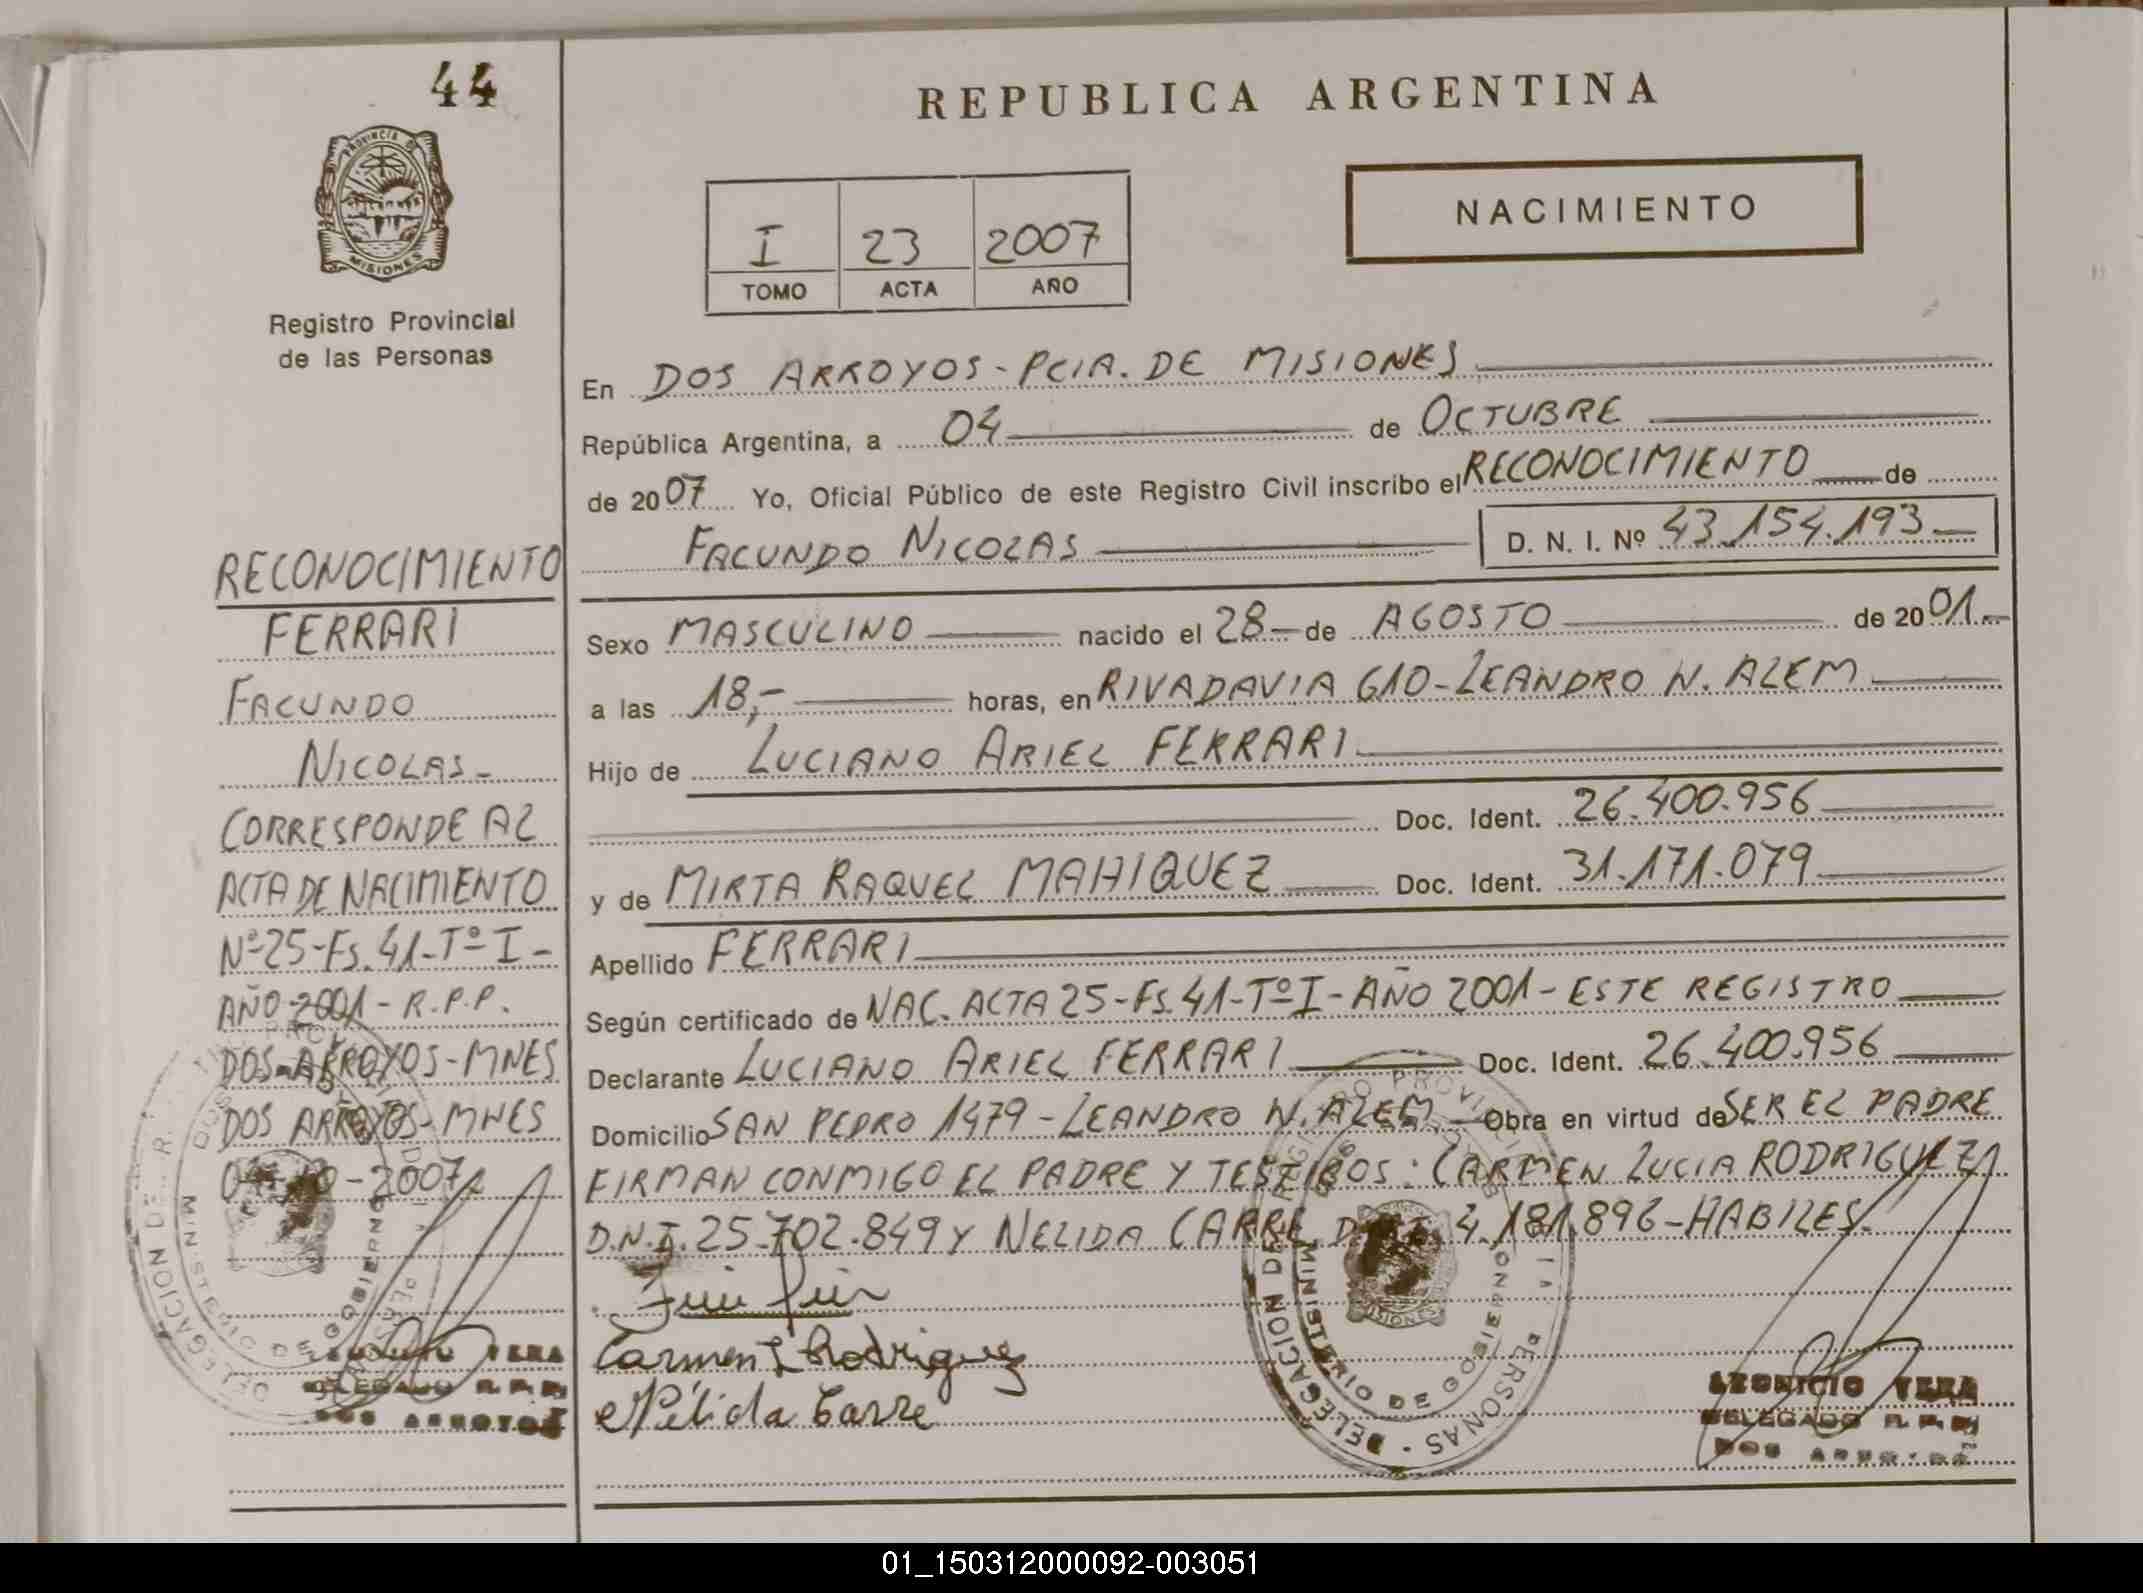 44
PROVINCIA DE
MISIONES
Registro Provincial
de las Personas
RECONOCIMIENTO
FERRARI
FACUNDO
NICOLAS-
CORRESPONDE AL
ACTA DE NACIMIENTO
Nº 25-Fs. 41-Tº I-
AÑO 2001-R.P.P.
DOS-ARROYOS-MNES
DOS ARROYOS-MNES
-2007
VERA
DELEGADO R.P.P.
DOS ARROYOS
REPUBLICA ARGENTINA
I 23 2007
TOMO ACTA AÑO
NACIMIENTO
En DOS ARROYOS-PCIA. DE MISIONES
República Argentina, a 04 de OCTUBRE
de 2007 Yo, Oficial Público de este Registro Civil inscribo el RECONOCIMIENTO de
FACUNDO NICOLAS D. N. I. Nº 43.154.193
Sexo MASCULINO nacido el 28 de AGOSTO de 2001.-
a las 18,- horas, en RIVADAVIA 610-LEANDRO N. ALEM
Hijo de LUCIANO ARIEL FERRARI
Doc. Ident. 26.400.956
y de MIRTA RAQUEL MAHIQUEZ Doc. Ident. 31.171.079
Apellido FERRARI
Según certificado de NAC. ACTA 25-Fs.41-Tº I-AÑO 2001-ESTE REGISTRO
Declarante LUCIANO ARIEL FERRARI Doc. Ident. 26.400.956
Domicilio SAN PEDRO 1479-LEANDRO N. ALEM- Obra en virtud de SER EL PADRE
FIRMAN CONMIGO EL PADRE Y TESTIGOS: CARMEN LUCIA RODRIGUEZ
D.N.I. 25.702.849 Y NELIDA CARRE D.N.I. 4.181.896-HABILES.
Carmen L Rodriguez
Nélida Carre
REGISTRO PROVINCIAL DE LAS PERSONAS - DELEGACION DE
MINISTERIO DE GOBIERNO
MISIONES
LEONICIO VERA
DELEGADO R.P.P.
DOS ARROYOS
01_150312000092-003051